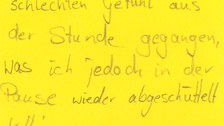 schlechten Gefühl aus
der Stunde gegangen,
was ich jedoch in der
Pause wieder abgeschüttelt